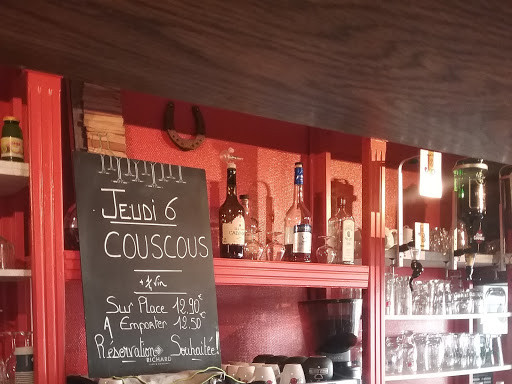 JEUDI 6
COUSCOUS
+ ¼ Vin
Sur Place 12.90€
A Emporter 12.50€
Réservation Souhaitée!
RICHARD